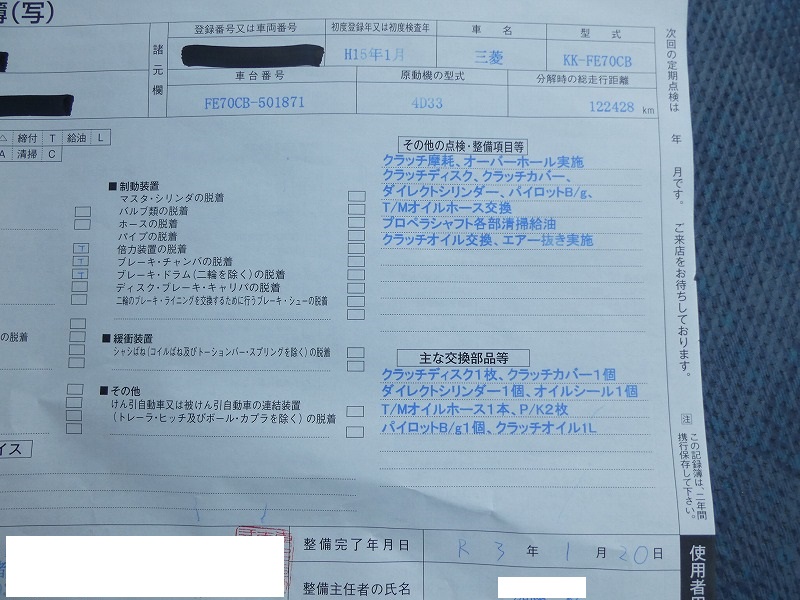 簿(写)
諸元欄
登録番号又は車両番号
初度登録年又は初度検査年
車 名
型 式
H15年1月
三菱
KK-FE70CB
車台番号
原動機の型式
分解時の総走行距離
FE70CB-501871
4D33
122428 km
次回の定期点検は 年 月です。 ご来店をお待ちしております。
△ 締付 T 給油 L
A 清掃 C
■ 制動装置
マスタ・シリンダの脱着
バルブ類の脱着
ホースの脱着
パイプの脱着
T 倍力装置の脱着
T ブレーキ・チャンバの脱着
T ブレーキ・ドラム(二輪を除く)の脱着
ディスク・ブレーキ・キャリパの脱着
二輪のブレーキ・ライニングを交換するために行うブレーキ・シューの脱着
の脱着
■ 緩衝装置
シャシばね(コイルばね及びトーションバー・スプリングを除く)の脱着
■ その他
けん引自動車又は被けん引自動車の連結装置
(トレーラ・ヒッチ及びボール・カプラを除く)の脱着
イス
その他の点検・整備項目等
クラッチ摩耗、オーバーホール実施
クラッチディスク、クラッチカバー、
ダイレクトシリンダー、パイロットB/g、
T/Mオイルホース交換
プロペラシャフト各部清掃給油
クラッチオイル交換、エアー抜き実施
主な交換部品等
クラッチディスク1枚、クラッチカバー1個
ダイレクトシリンダー1個、オイルシール1個
T/Mオイルホース1本、P/K2枚
パイロットB/g1個、クラッチオイル1L
注 この記録簿は、二年間
携行保存して下さい。
整備完了年月日
R 3 年 1 月 20 日
整備主任者の氏名
使用者用